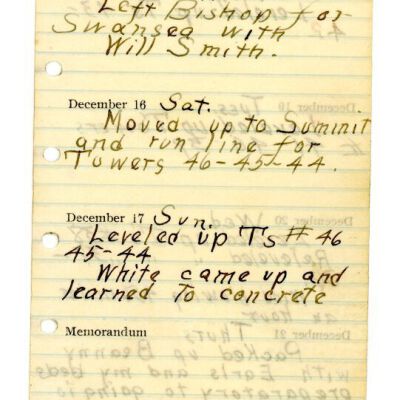 Left Bishop for
Swansea with
Will Smith.
December 16 Sat.
Moved up to Summit
and run line for
Towers 46-45-44.
December 17 Sun.
Leveled up Ts # 46
45-44
White came up and
learned to concrete
Memorandum